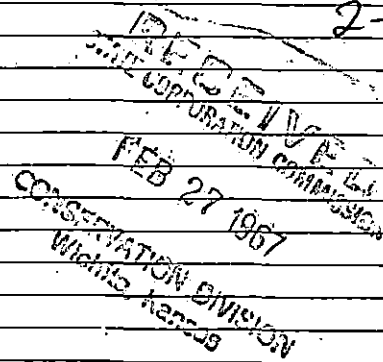 2-
RECEIVED
STATE CORPORATION COMMISSION
FEB 27 1967
CONSERVATION DIVISION
Wichita, Kansas